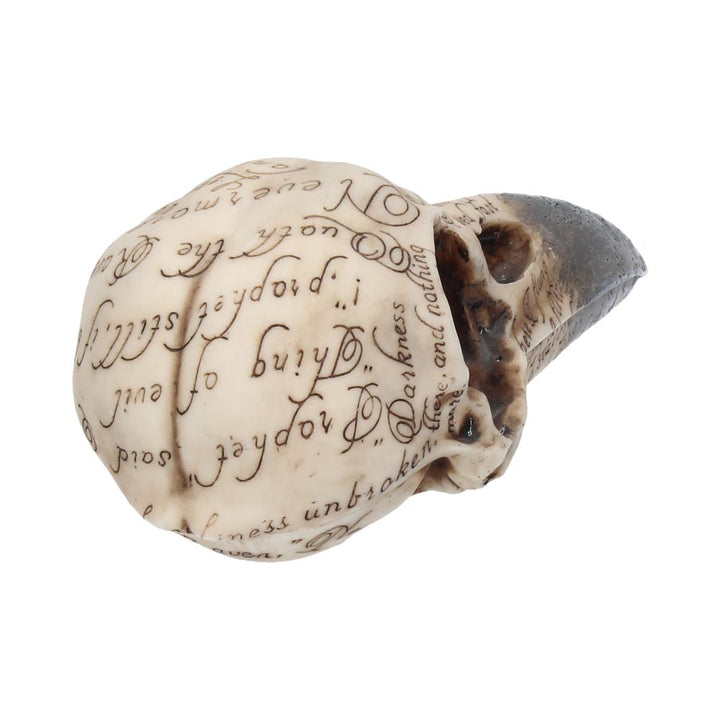 "Prophet" said
"Thing of evil
!" prophet still, if
Quoth the Rave
Nevermor
"Darkness
there, and nothing
more
lness unbroken,
aven, "